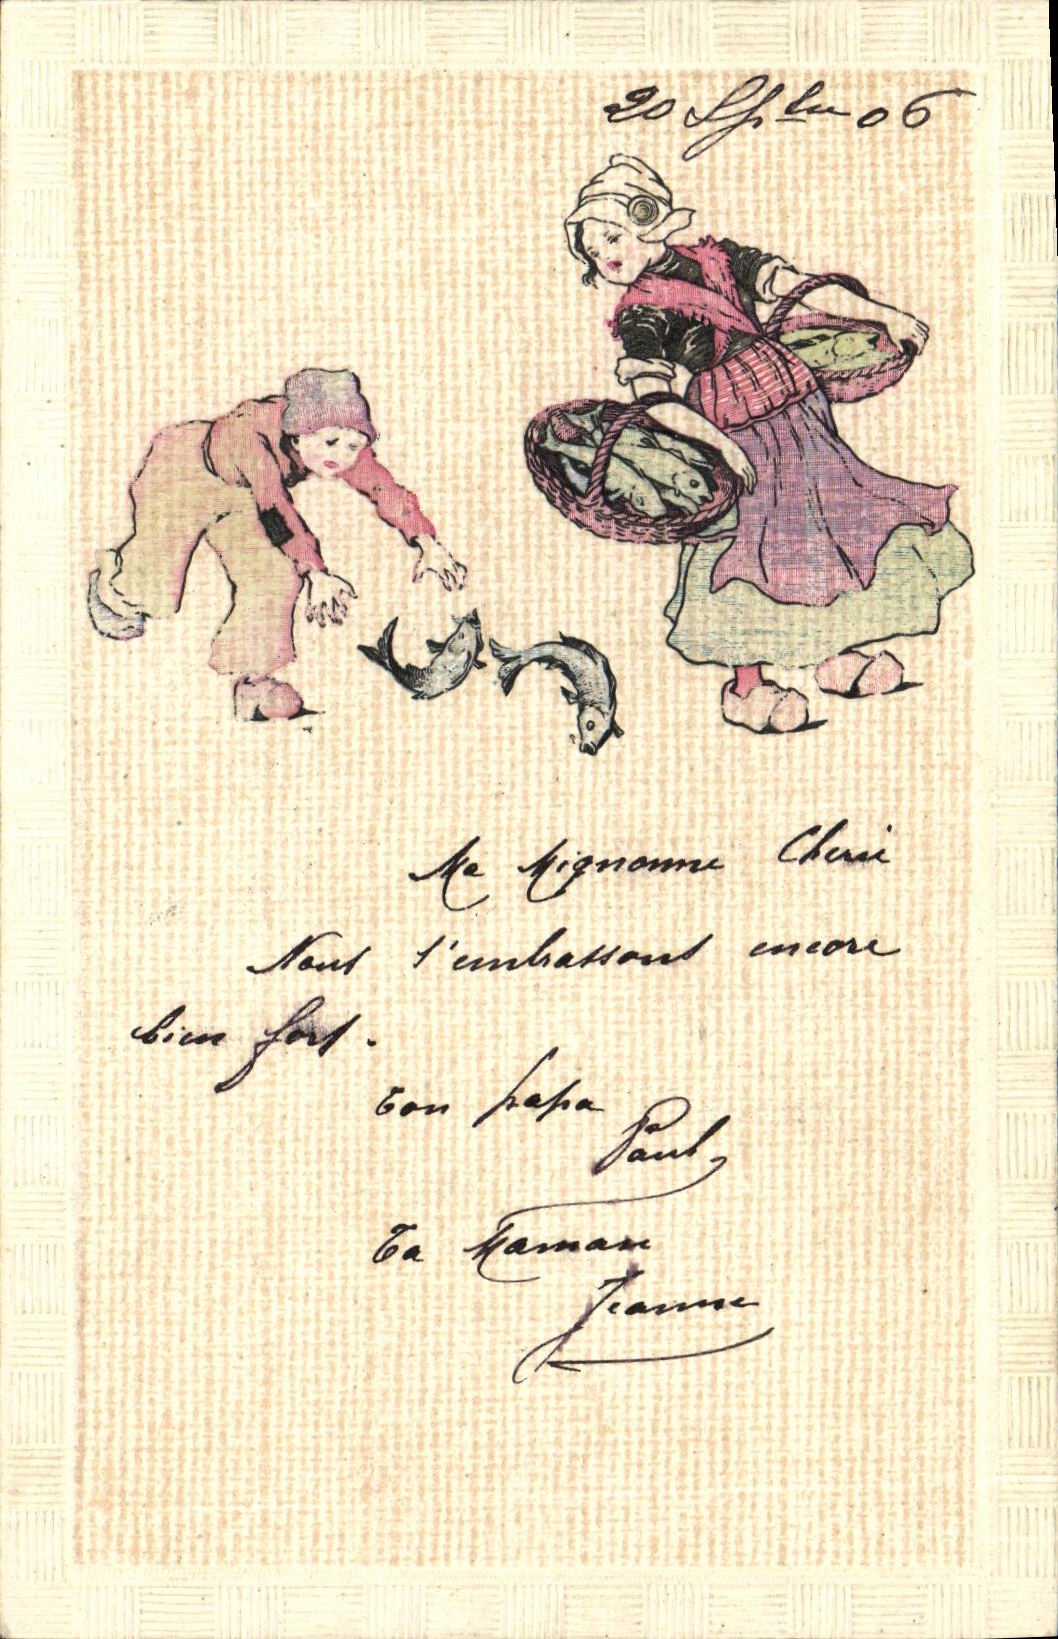 20 Spbre 06
Ma Mignonne Cherie
Nous t'embrassons encore
bien fort.
Ton papa
Paul
Ta Maman
Jeanne